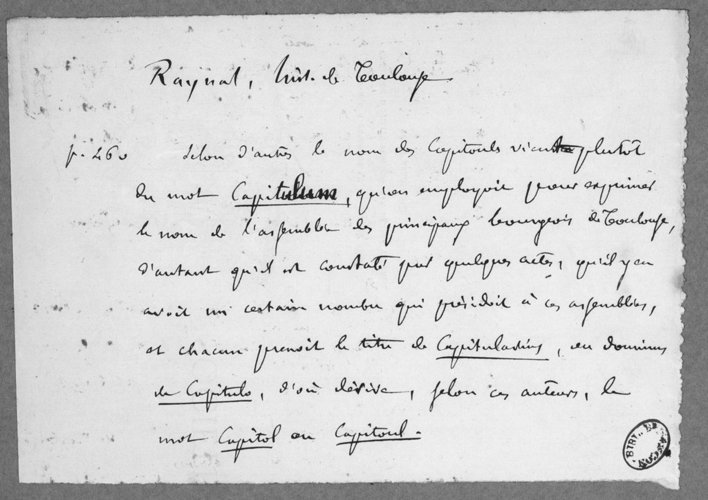 Raynal, hist. de Toulouse
p. 260 Selon d'autres le nom des Capitouls vient plutôt
du mot Capitulum, qu'on employoit pour exprimer
le nom de l'assemblée des principaux bourgeois de Toulouse,
d'autant qu'il est constaté par quelques actes, qu'il y en
avoit un certain nombre qui présidoit à ces assemblées,
et chacun prenoit le titre de Capitularius, ou dominus
de Capitulo, d'où dérive, selon ces auteurs, le
mot Capitol ou Capitoul.